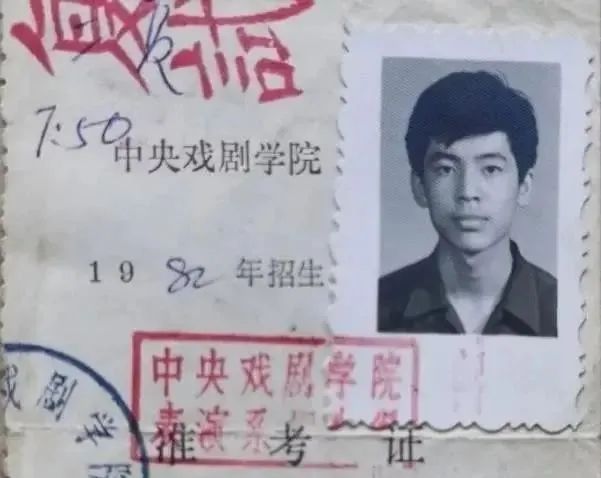 复试
7:50
中央戏剧学院
1982年招生
中央戏剧学院
表演系
准考证
戏剧学院